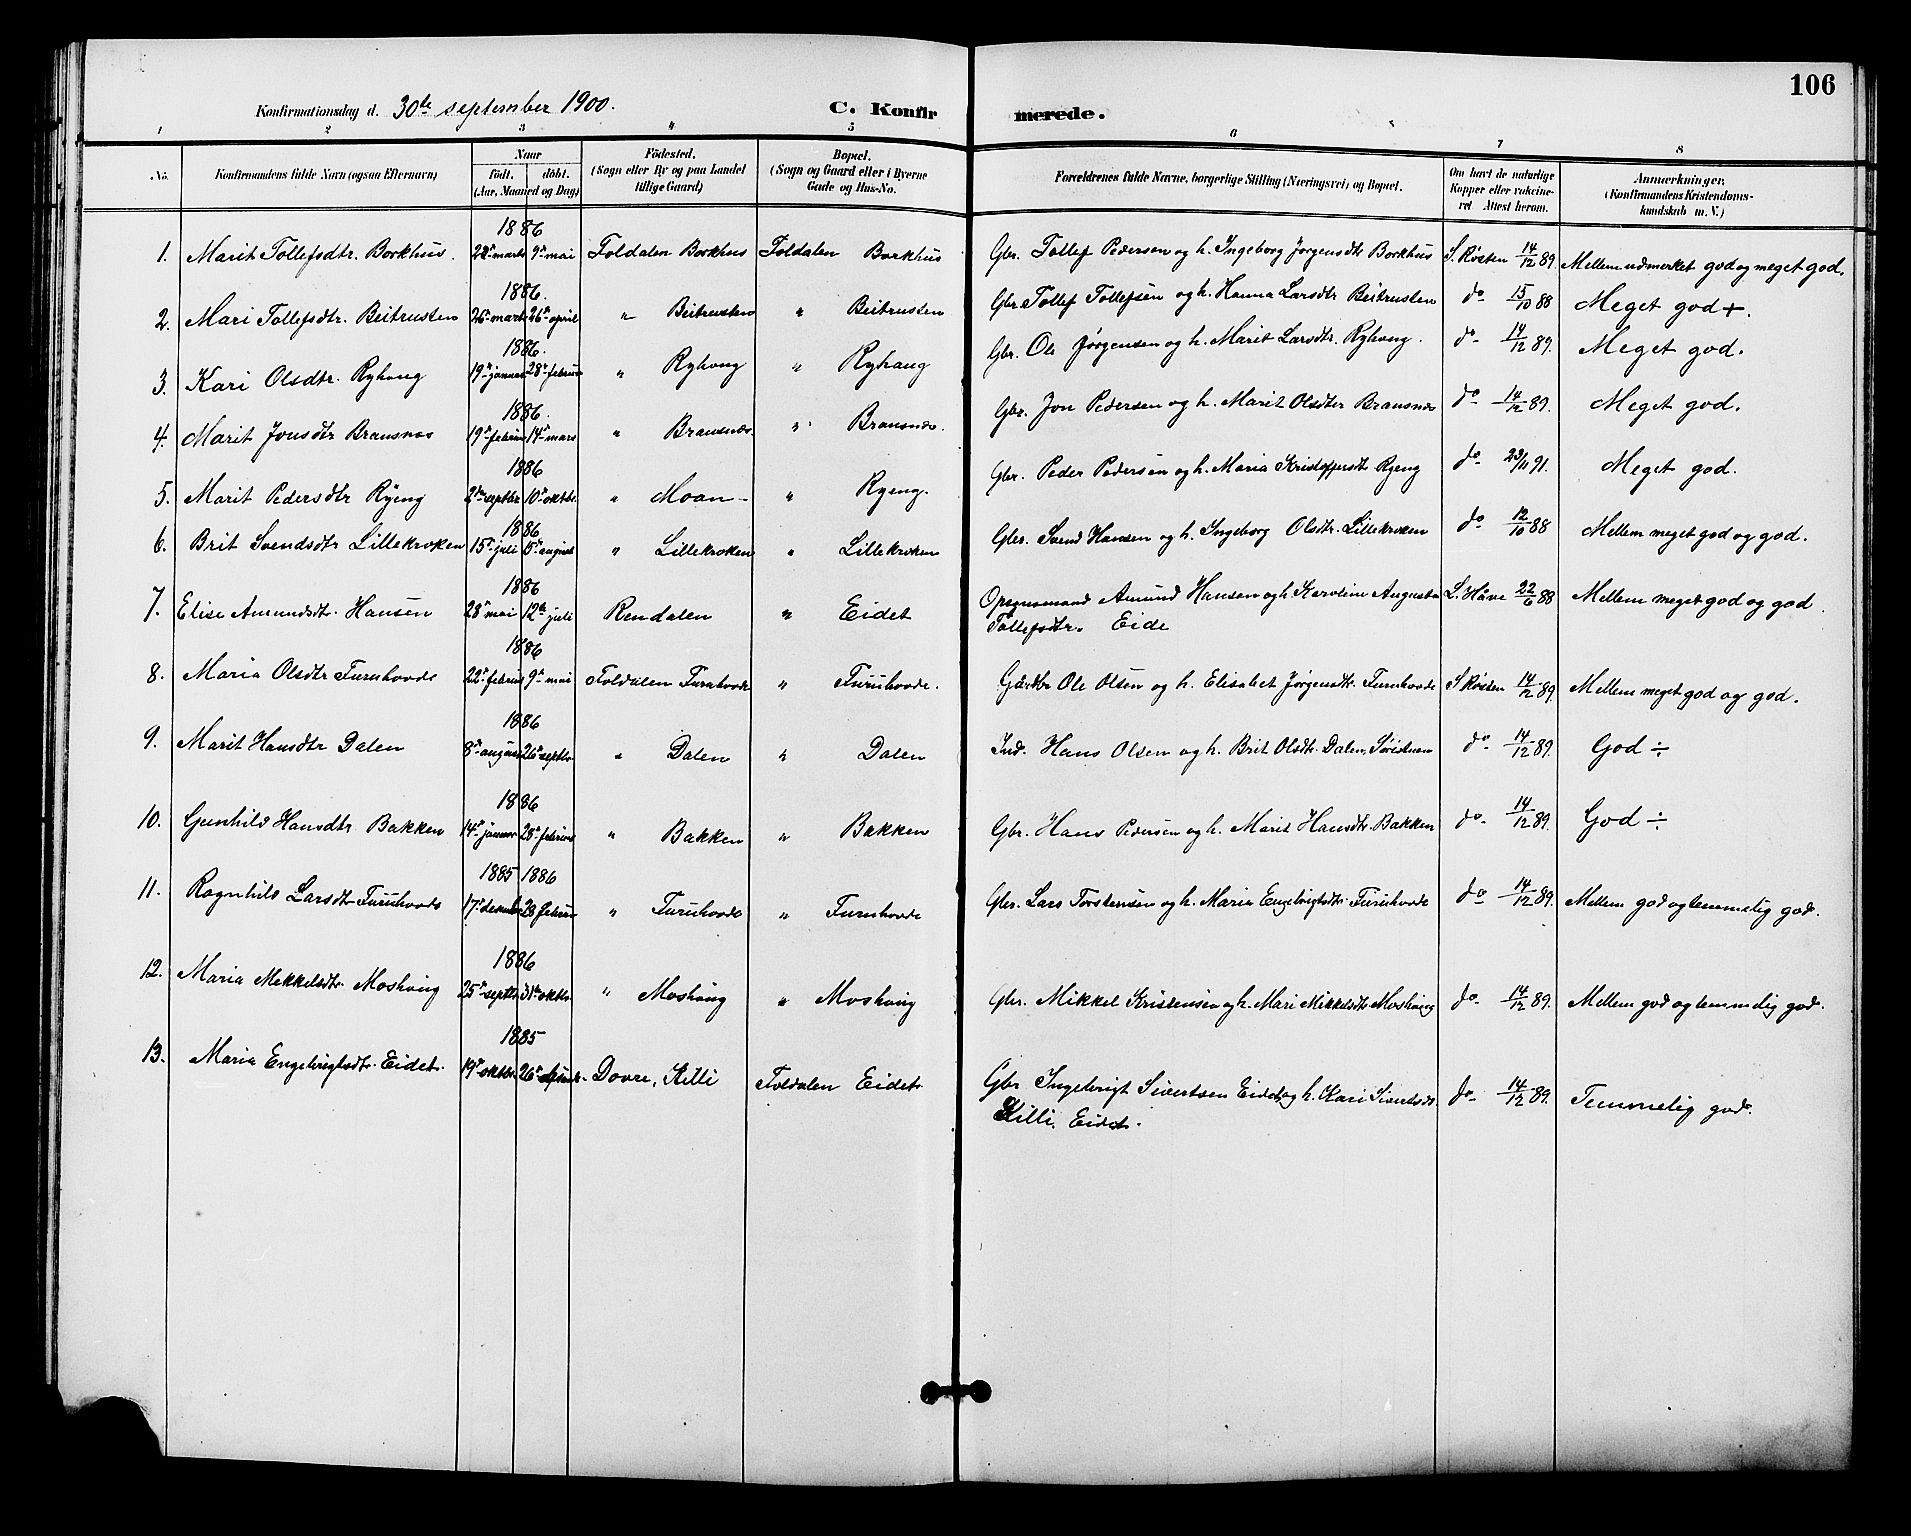 106
Konfirmationsdag d. 30te september 1900. C. Konfirmerede.
1 2 3 4 5 6 7 8
No. Konfirmandens fulde Navn (ogsaa Efternavn) Naar født. døbt. (Aar, Maaned og Dag) Födested. (Sogn eller By og paa Landet tillige Gaard) Bopæl. (Sogn og Gaard eller i Byerne Gade og Hus-No. Forældrenes fulde Navne, borgerlige Stilling (Næringsvei) og Bopæl. Om havt de naturlige Kopper eller vakcineret Attest herom. Anmærkninger, (Konfirmandens Kristendomskundskab m. V.)
1886
1. Marit Tollefsdtr. Borkhus. 28de marts 9de mai Foldalen Borkhus Foldalen Borkhus Gbr. Tollef Pedersen og h. Ingeborg Jørgensdtr Borkhus S. Røsten 14/12 89. Mellem udmerket god og meget god.
1886.
2. Mari Tollefsdtr. Beitrusten 26de marts 26de april " Beitrusten " Beitrusten Gbr. Tollef Tollefsen og h. Hanna Larsdtr Beitrusten do 15/10 88 Meget god +.
1886.
3. Kari Olsdtr. Ryhaug 19de januar 28de februar " Ryhaug " Ryhaug Gbr. Ole Jørgensen og h. Marit Larsdtr. Ryhaug. do 14/12 89. Meget god.
1886.
4. Marit Jonsdtr Bransnes 19de februar 14de mars " Bransnes. " Bransnes. Gbr. Jon Pedersen og h. Marit Olsdter Bransnes do 14/12 89. Meget god.
1886
5. Marit Pedersdtr Ryeng 2den septbr 10de oktbr. " Moan " Ryeng. Gbr. Peder Pedersen og h. Maria Kristoffersdtr Ryeng do 23/11 91. Meget god.
1886
6. Brit Svendsdtr Lillekroken 15de juli 15de august " Lillekroken " Lillekroken Gbr. Svend Hansen og h. Ingeborg Olsdtr. Lillekroken do 12/10 88 Mellem meget god og god.
1886
7. Elise Amundsdtr. Hansen 28de mai 12te juli Rendalen " Eidet Opsynsmand Amund Hansen og h. Karoline Augusta L. Håve 22/6 88 Mellem meget god og god.
Tollefsdtr. Eide
1886
8. Maria Olsdtr Furuhovde 22de februar 9de mai Foldalen Furuhovde " Furuhovde. Gbr. Ole Olsen og h. Elisabet Jørgensdtr. Furuhovde S Røsten 14/12 89. Mellem meget god og god.
1886
9. Marit Hansdtr Dalen 8de august 26de septbr. " Dalen " Dalen Ind. Hans Olsen og h. Brit Olsdtr. Dalen, do 14/12 89. God ÷
1886
10. Gunhild Hansdtr Bakken 14de januar 28de februar " Bakken " Bakken Gbr. Hans Pedersen og h. Marit Hansdtr. Bakken do 14/12 89. God ÷
1885 1886
11. Ragnhild Larsdtr Furuhovde 17de desember 28 februar " Furuhovde " Furuhovde Gbr. Lars Torstensen og h. Maria Engebrigtsdtr. Furuhovde do 14/12 89. Mellem god og temmelig god.
1886
12. Maria Mikkelsdtr. Moshaug 25de septbr. 31te oktbr. " Moshaug " Moshaug Gbr. Mikkel Kristensen og h. Mari Mikkelsdtr. Moshaug do 14/12 89. Mellem god og temmelig god.
1885
13. Maria Engebrigtsdtr. Eidet. 19de oktbr. 26de Dovre, Killi Foldalen Eidet Gbr Ingebrigt Sivertsen Eidet og h. Kari Sivertsdtr. do 14/12 89. Temmelig god.
Killi, Eidet.